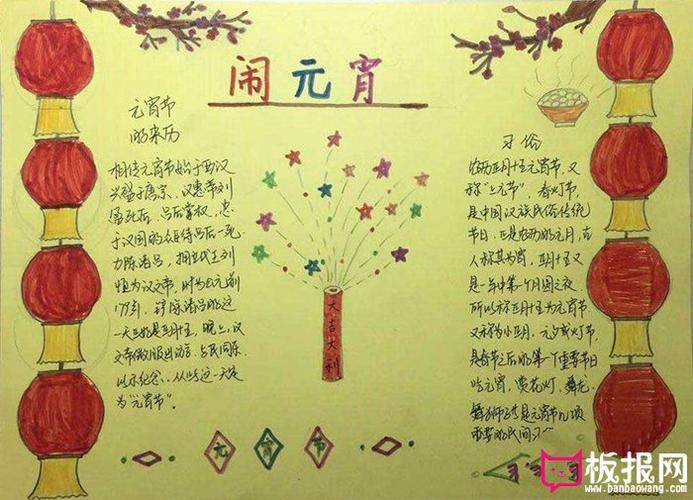 闹元宵
元宵节
的来历
相传元宵节始于西汉
兴盛于唐宗、汉惠帝刘
盈死后,吕后掌权,忠
于汉国的众臣待吕后一死
力除诸吕,拥立代王刘
恒为汉文帝,时为公元前
除诸吕的这
一天正好是正月十五,晚上,汉
文帝微服出访,与民同乐
以示纪念,从此这一天定
为"元宵节"。
大吉大利
习俗
农历正月十五元宵节,又
称"上元节",春灯节,
是中国汉族民俗传统
节日,正是农历的元月,古
人称其为宵,正月十五又
是一年中第一个月圆之夜
所以称正月十五为元宵节
又称为小正月、元夕或灯节,
是春节之后的第一个重要节日
吃元宵、赏花灯、舞龙、
舞狮子是元宵节几项
重要的民间习俗
元宵节
板报网
www.banbaowang.com